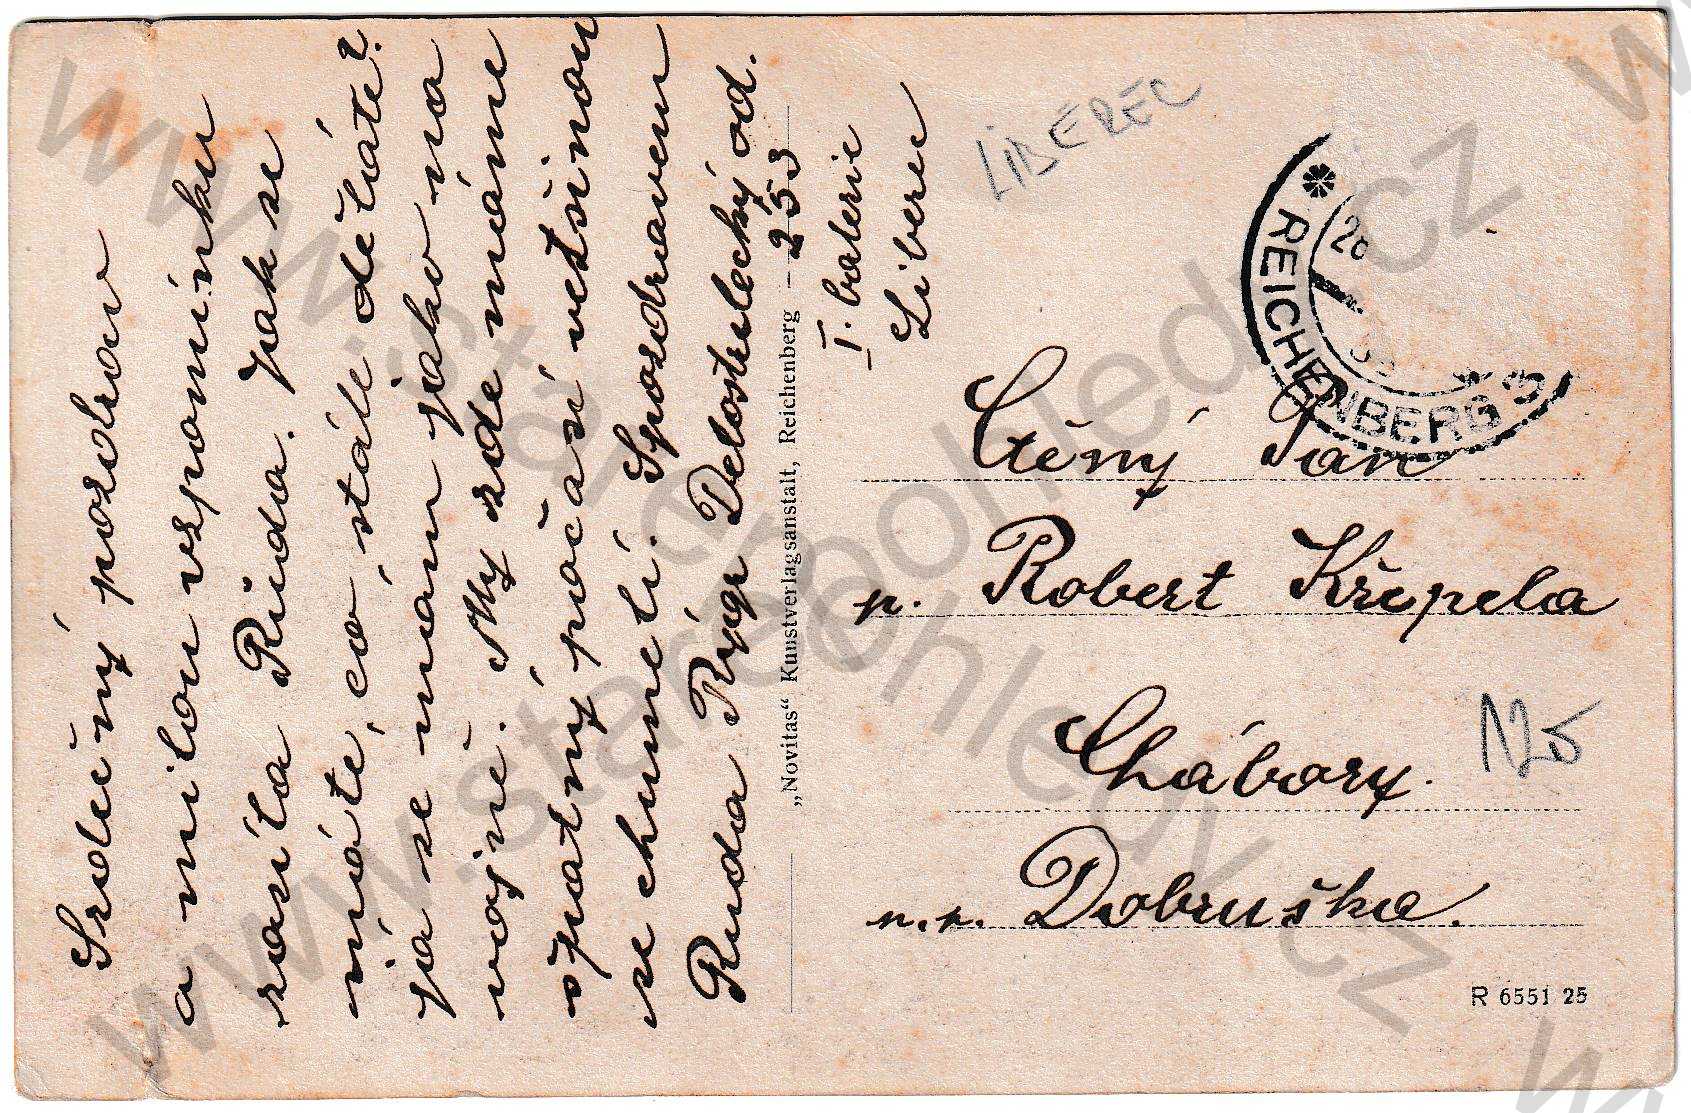 Srdečný pozdrav
a milou vzpomínku
zasíla Ruda. Jak se
máte, co stále deláte?
já se mám jako na
vojně. My zde máme
špatný počasí vetšinou
se chumelí. Spozdravem
Ruda Rýgr Delostřelecký od.
253
I. baterie
Liberec
„Novitas“ Kunstverlagsanstalt, Reichenberg
LIBEREC
* REICHENBERG
Ctěný Pan
p. Robert Křepela
Chábory.
n.p. Dobruška.
N25
R 6551 25
www.starepohledy.cz
www.starepohledy.cz